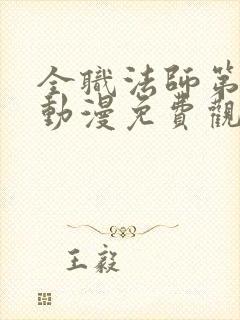 全職法師第
動漫免費觀
王毅